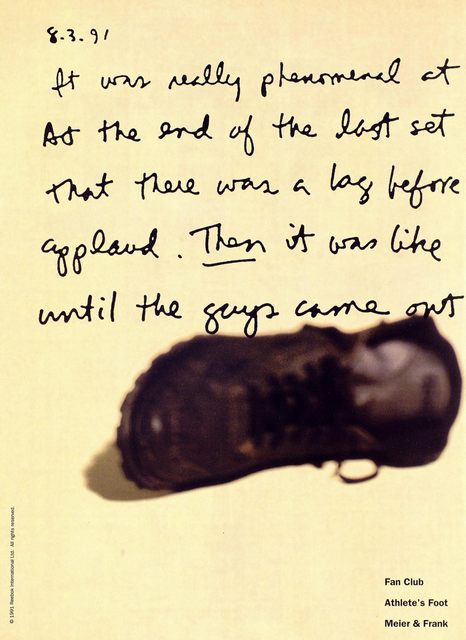 8.3.91
It was really phenomenal at
At the end of the last set
that there was a lag before
applaud. Then it was like
until the guys came out
© 1991 Reebok International Ltd. All rights reserved.
Fan Club
Athlete's Foot
Meier & Frank